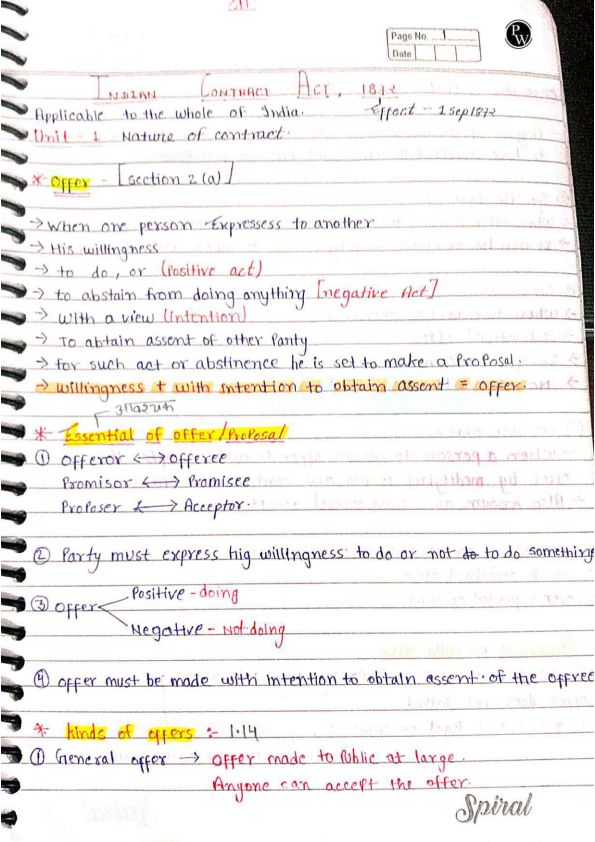 Page No. 1
Date
PW
INDIAN CONTRACT ACT, 1872
Applicable to the whole of India. Effect - 1 Sep 1872
Unit - 1 Nature of contract.
* Offer - [section 2(a)]
→ When one person Expressess to another
→ His willingness
→ to do, or (Positive act)
→ to abstain from doing anything [negative Act]
→ with a view (intention)
→ To abtain assent of other Party
→ for such act or abstinence he is set to make a Proposal.
→ willingness + with intention to obtain assent = offer.
आवश्यक
* Essential of offer/Proposal
① Offeror ↔ Offeree
Promisor ↔ Promisee
Proposer ↔ Acceptor.
② Party must express hig willingness to do or not to do something
③ Offer
Positive - doing
Negative - Not doing
④ offer must be made with intention to obtain assent. of the offree
* kinds of offers :- 1.14
① General offer → offer made to Public at large.
Anyone can accept the offer.
Spiral